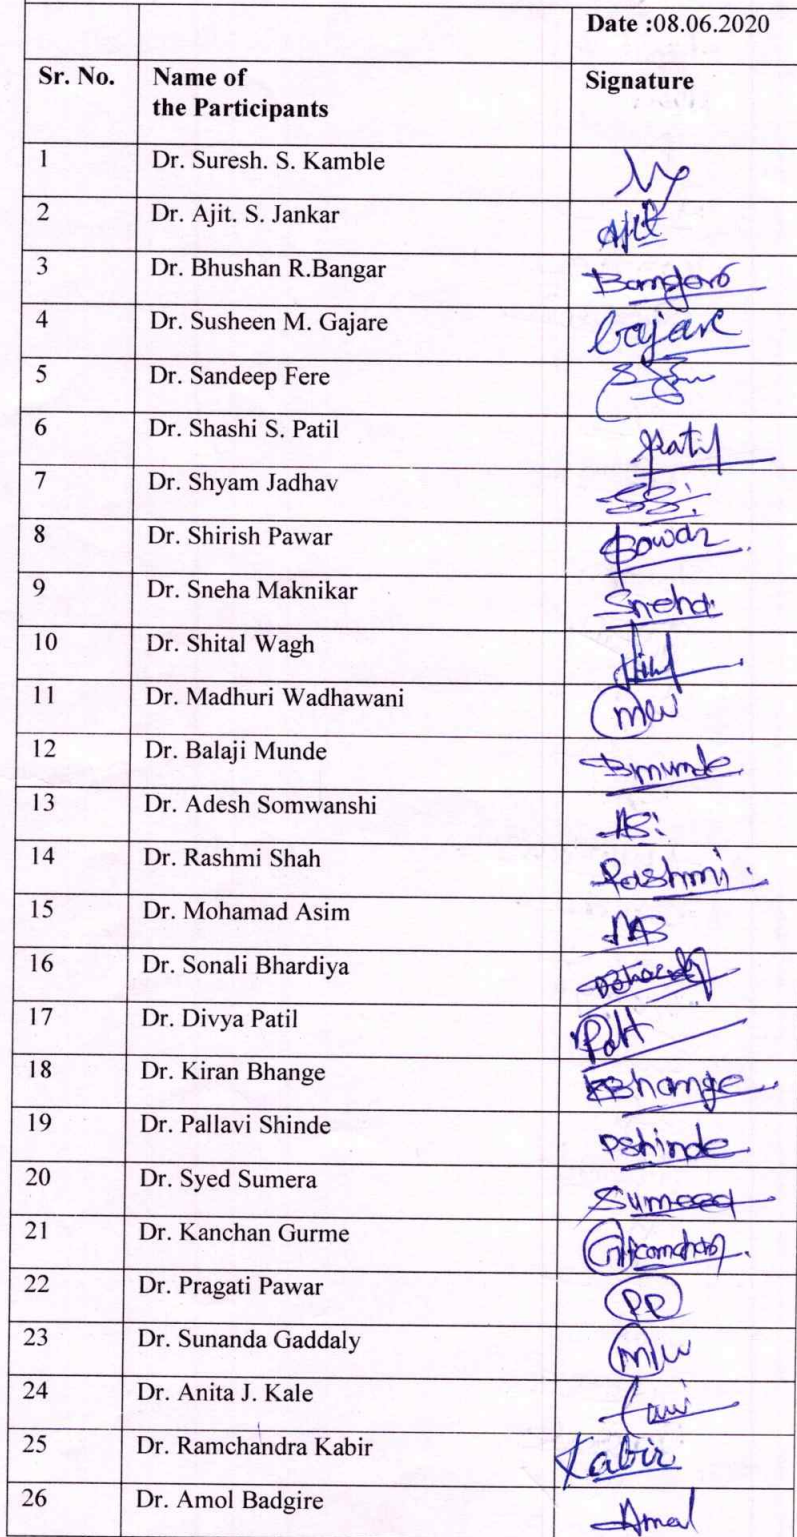 Date :08.06.2020
Sr. No. Name of the Participants Signature
1 Dr. Suresh. S. Kamble
2 Dr. Ajit. S. Jankar Ajit
3 Dr. Bhushan R.Bangar
4 Dr. Susheen M. Gajare Gajare
5 Dr. Sandeep Fere
6 Dr. Shashi S. Patil Patil
7 Dr. Shyam Jadhav
8 Dr. Shirish Pawar
9 Dr. Sneha Maknikar Sneha
10 Dr. Shital Wagh
11 Dr. Madhuri Wadhawani MW
12 Dr. Balaji Munde Bmunde
13 Dr. Adesh Somwanshi
14 Dr. Rashmi Shah Rashmi
15 Dr. Mohamad Asim
16 Dr. Sonali Bhardiya
17 Dr. Divya Patil
18 Dr. Kiran Bhange KBhange
19 Dr. Pallavi Shinde Pshinde
20 Dr. Syed Sumera
21 Dr. Kanchan Gurme
22 Dr. Pragati Pawar PP
23 Dr. Sunanda Gaddaly
24 Dr. Anita J. Kale
25 Dr. Ramchandra Kabir Kabir
26 Dr. Amol Badgire Amol